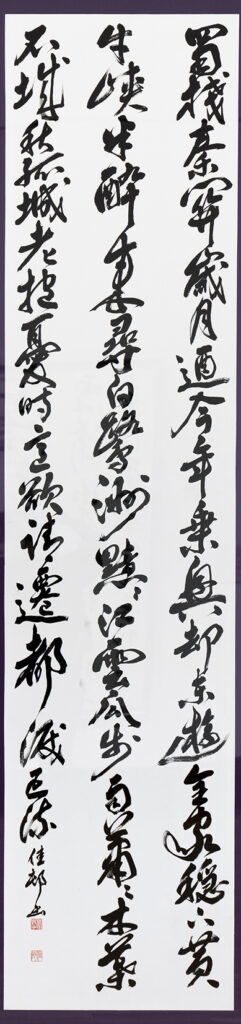 蜀棧秦關歲月遒今年乗興却東遊全家穩下黄
牛峽半酔来尋白鷺洲黯々江雲瓜歩雨蕭々木葉
石城秋孤城老抱憂時意欲請遷都涙已流 佳邨書